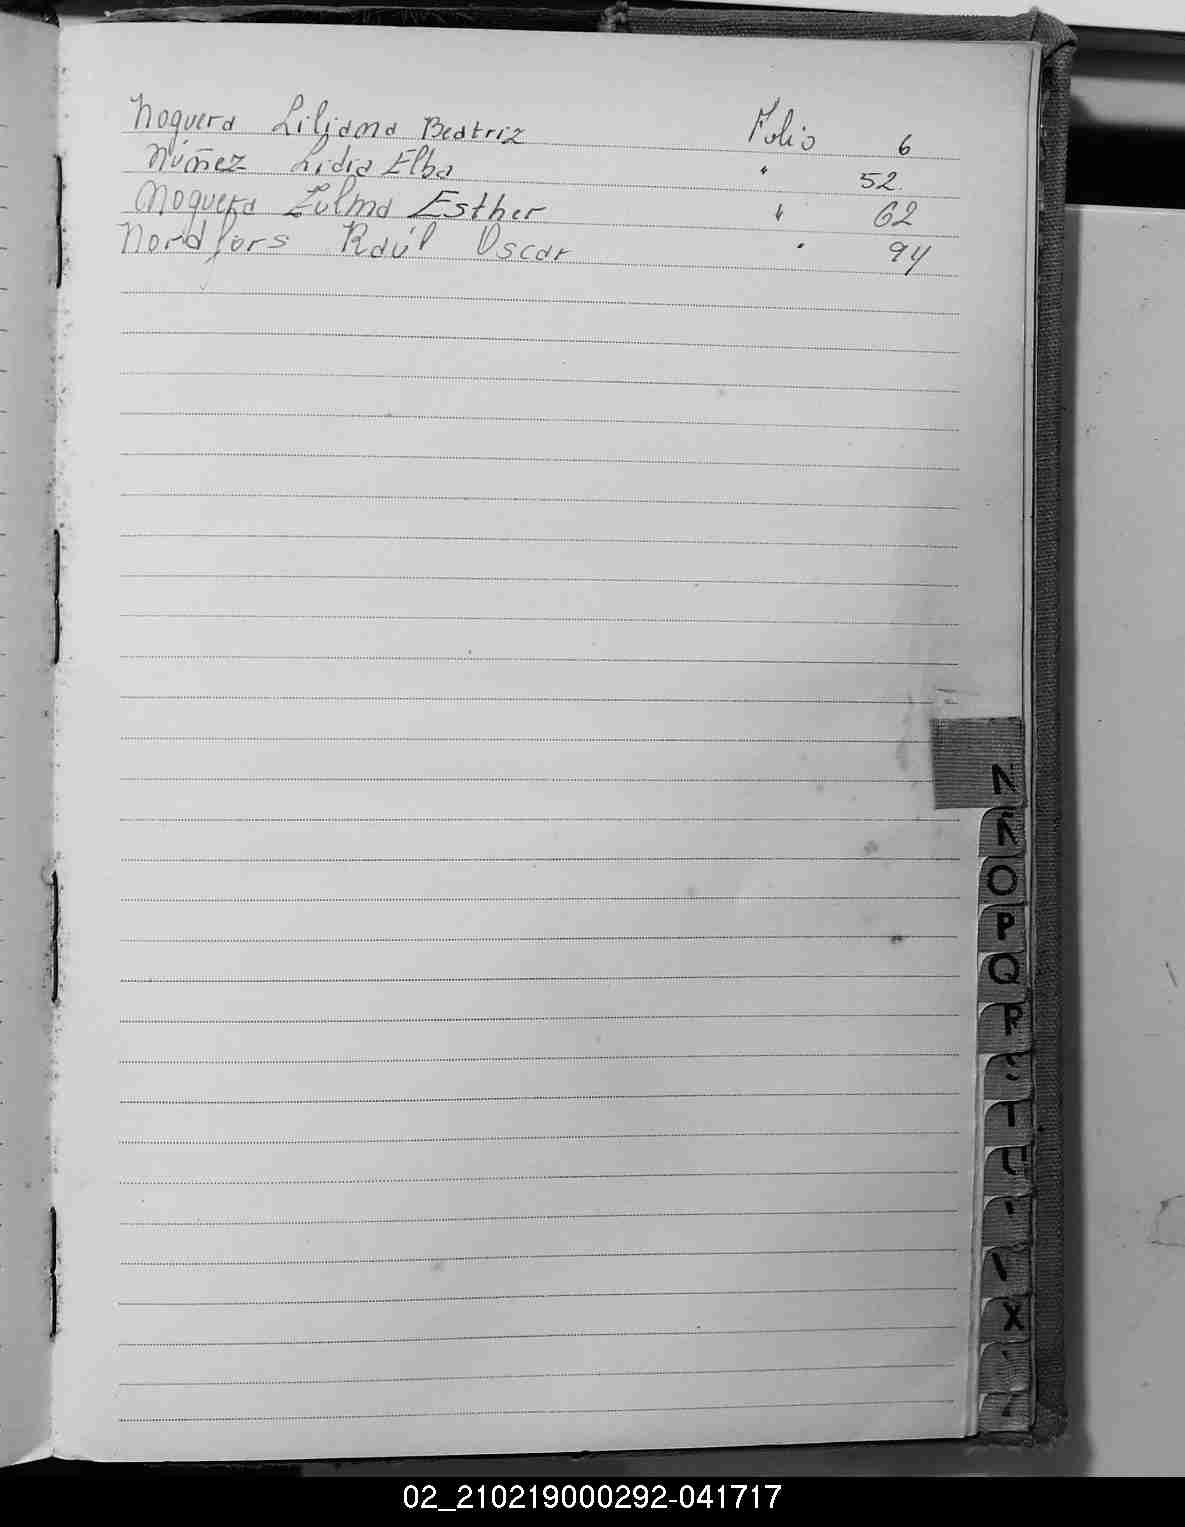 Noguera Liliana Beatriz Folio 6
Núñez Lidia Elba " 52.
Noguera Zulma Esther " 62
Nordfors Raúl Oscar " 94
N
Ñ
O
P
Q
R
T
U
X
02_210219000292-041717